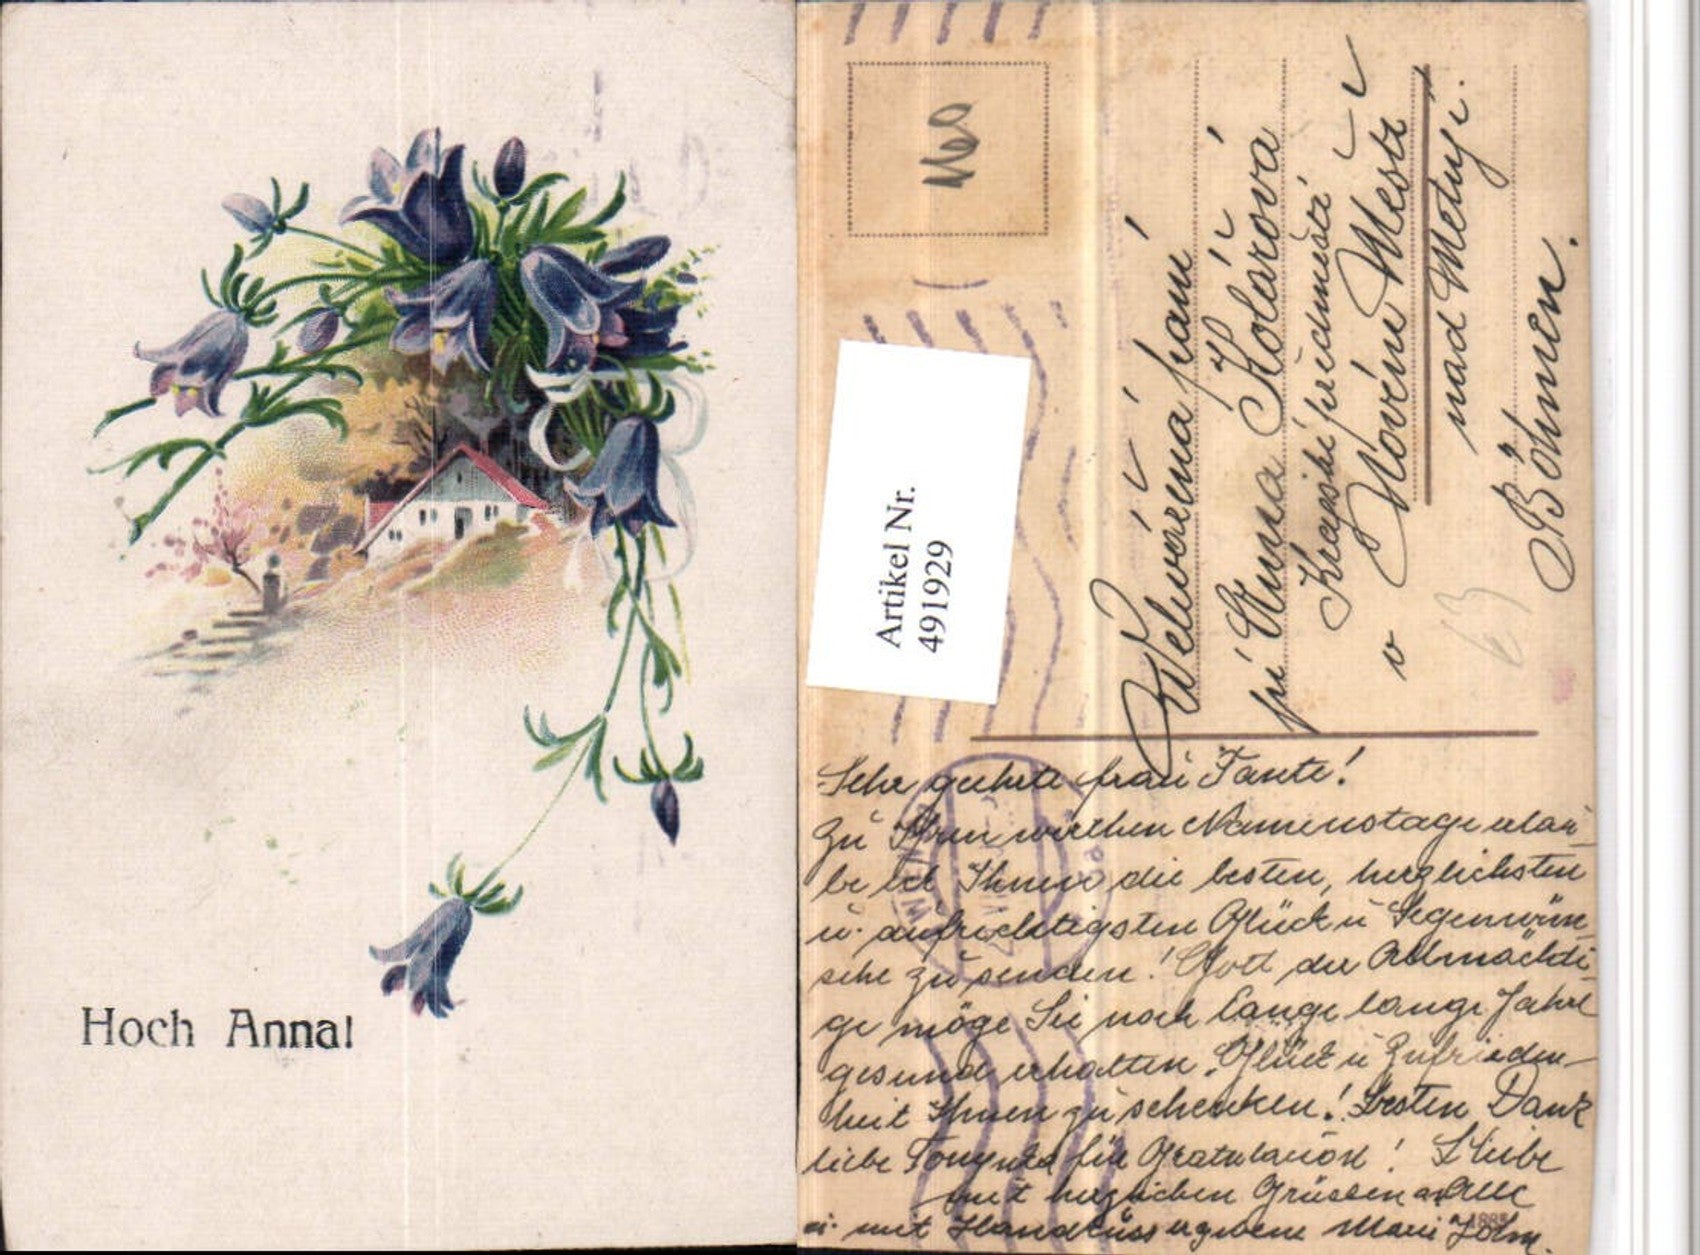 Hoch Anna!
160
Artikel Nr.
491929
Velevážená paní
pí Anna Kolářová
Krajské předměstí
v Novém Městě
nad Metují.
Böhmen.
Sehr geehrte Frau Tante!
Zu Ihren werthen Namenstage erlau-
be ich Ihnen die besten, herzlichsten
u. aufrichtigsten Glück u Segenwün-
sche zu senden! Gott der Allmächti-
ge möge Sie noch lange lange Jahre
gesund erhalten, Glück u Zufrieden-
heit Ihnen zu schenken! Besten Dank
liebe für Gratulation! bleibe
mit herzlichen Grüssen an Alle
u. mit Handkuss ergebene Marie